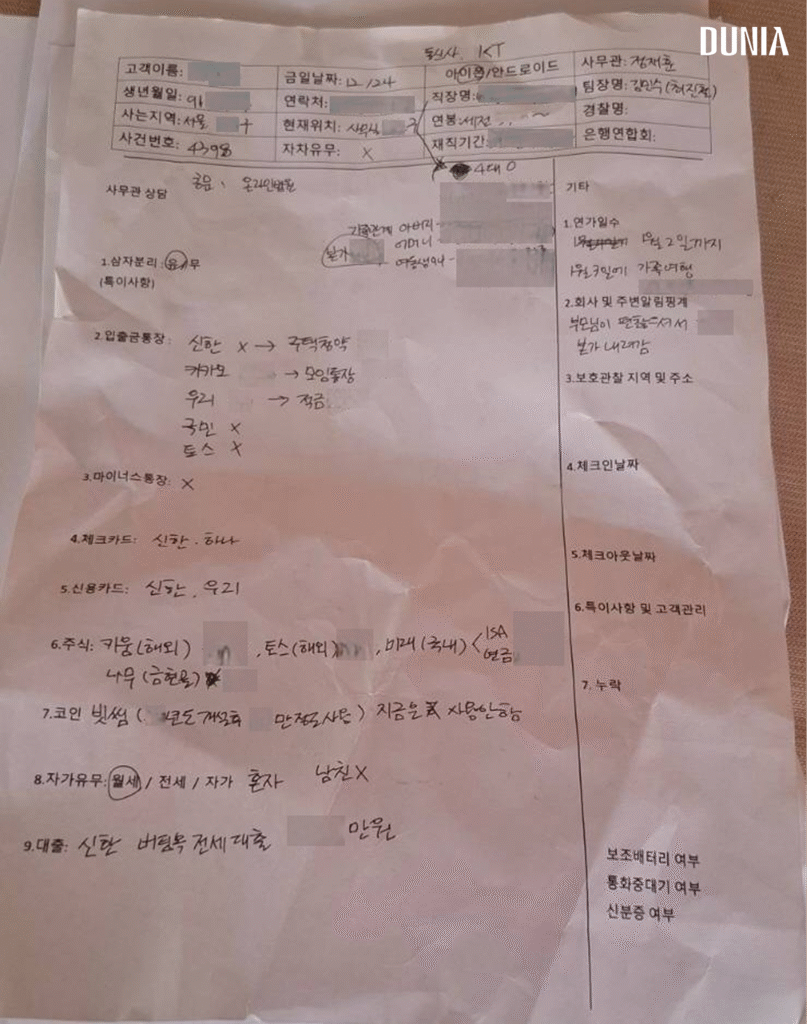 DUNIA
통신사 KT
고객이름:
금일날짜: 12/24
아이폰/안드로이드
사무관: 정재훈
생년월일: 91
연락처:
직장명:
팀장명: 김민수 (최진철)
사는지역: 서울 구
현재위치:
연봉: 세전 ~
경찰명:
사건번호: 4398
자차유무: X
재직기간:
은행연합회:
4대 O
사무관 상담
공문, 온라인법원
가족관계 아버지 -
본가
어머니 -
여동생94 -
1.삼자분리: 유/무
(특이사항)
2.입출금통장: 신한 X → 주택청약
카카오 → 모임통장
우리 → 적금
국민 X
토스 X
3.마이너스통장: X
4.체크카드: 신한 . 하나
5.신용카드: 신한 . 우리
6.주식: 키움(해외) , 토스(해외) , 미래(국내) < ISA
연금
나무(금현물)
7.코인 빗썸 ( 년도 만정도사용) 지금은 사용안함
8.자가유무: 월세 / 전세 / 자가 혼자 남친X
9.대출: 신한 버팀목 전세대출 만원
기타
1.연가일수
1월2일까지
1월3일에 가족여행
2.회사 및 주변알림핑계
부모님이 편찮으셔서
본가 내려감
3.보호관찰 지역 및 주소
4.체크인날짜
5.체크아웃날짜
6.특이사항 및 고객관리
7. 누락
보조배터리 여부
통화중대기 여부
신분증 여부